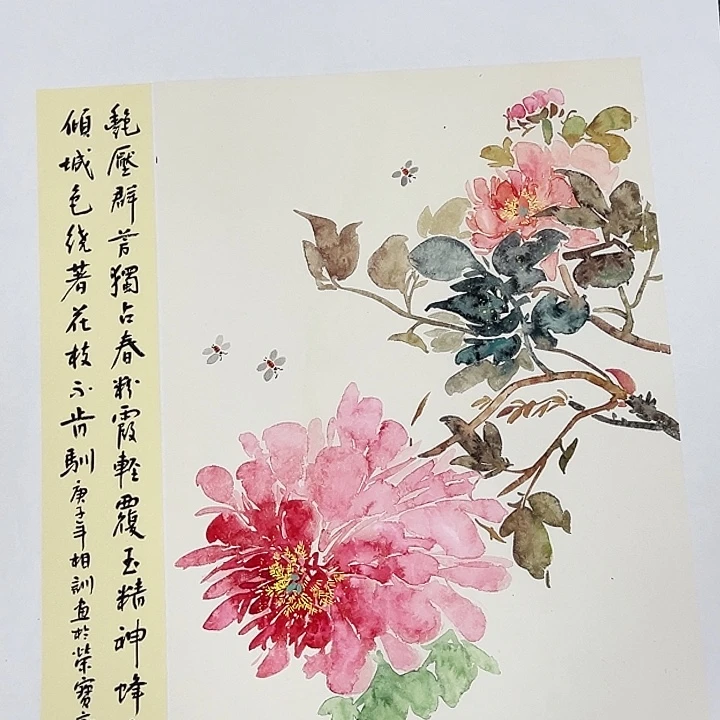 艷壓群芳獨占春粉霞輕覆玉精神蜂
傾城色繞著花枝不肯馴庚子年相訓画於榮寶